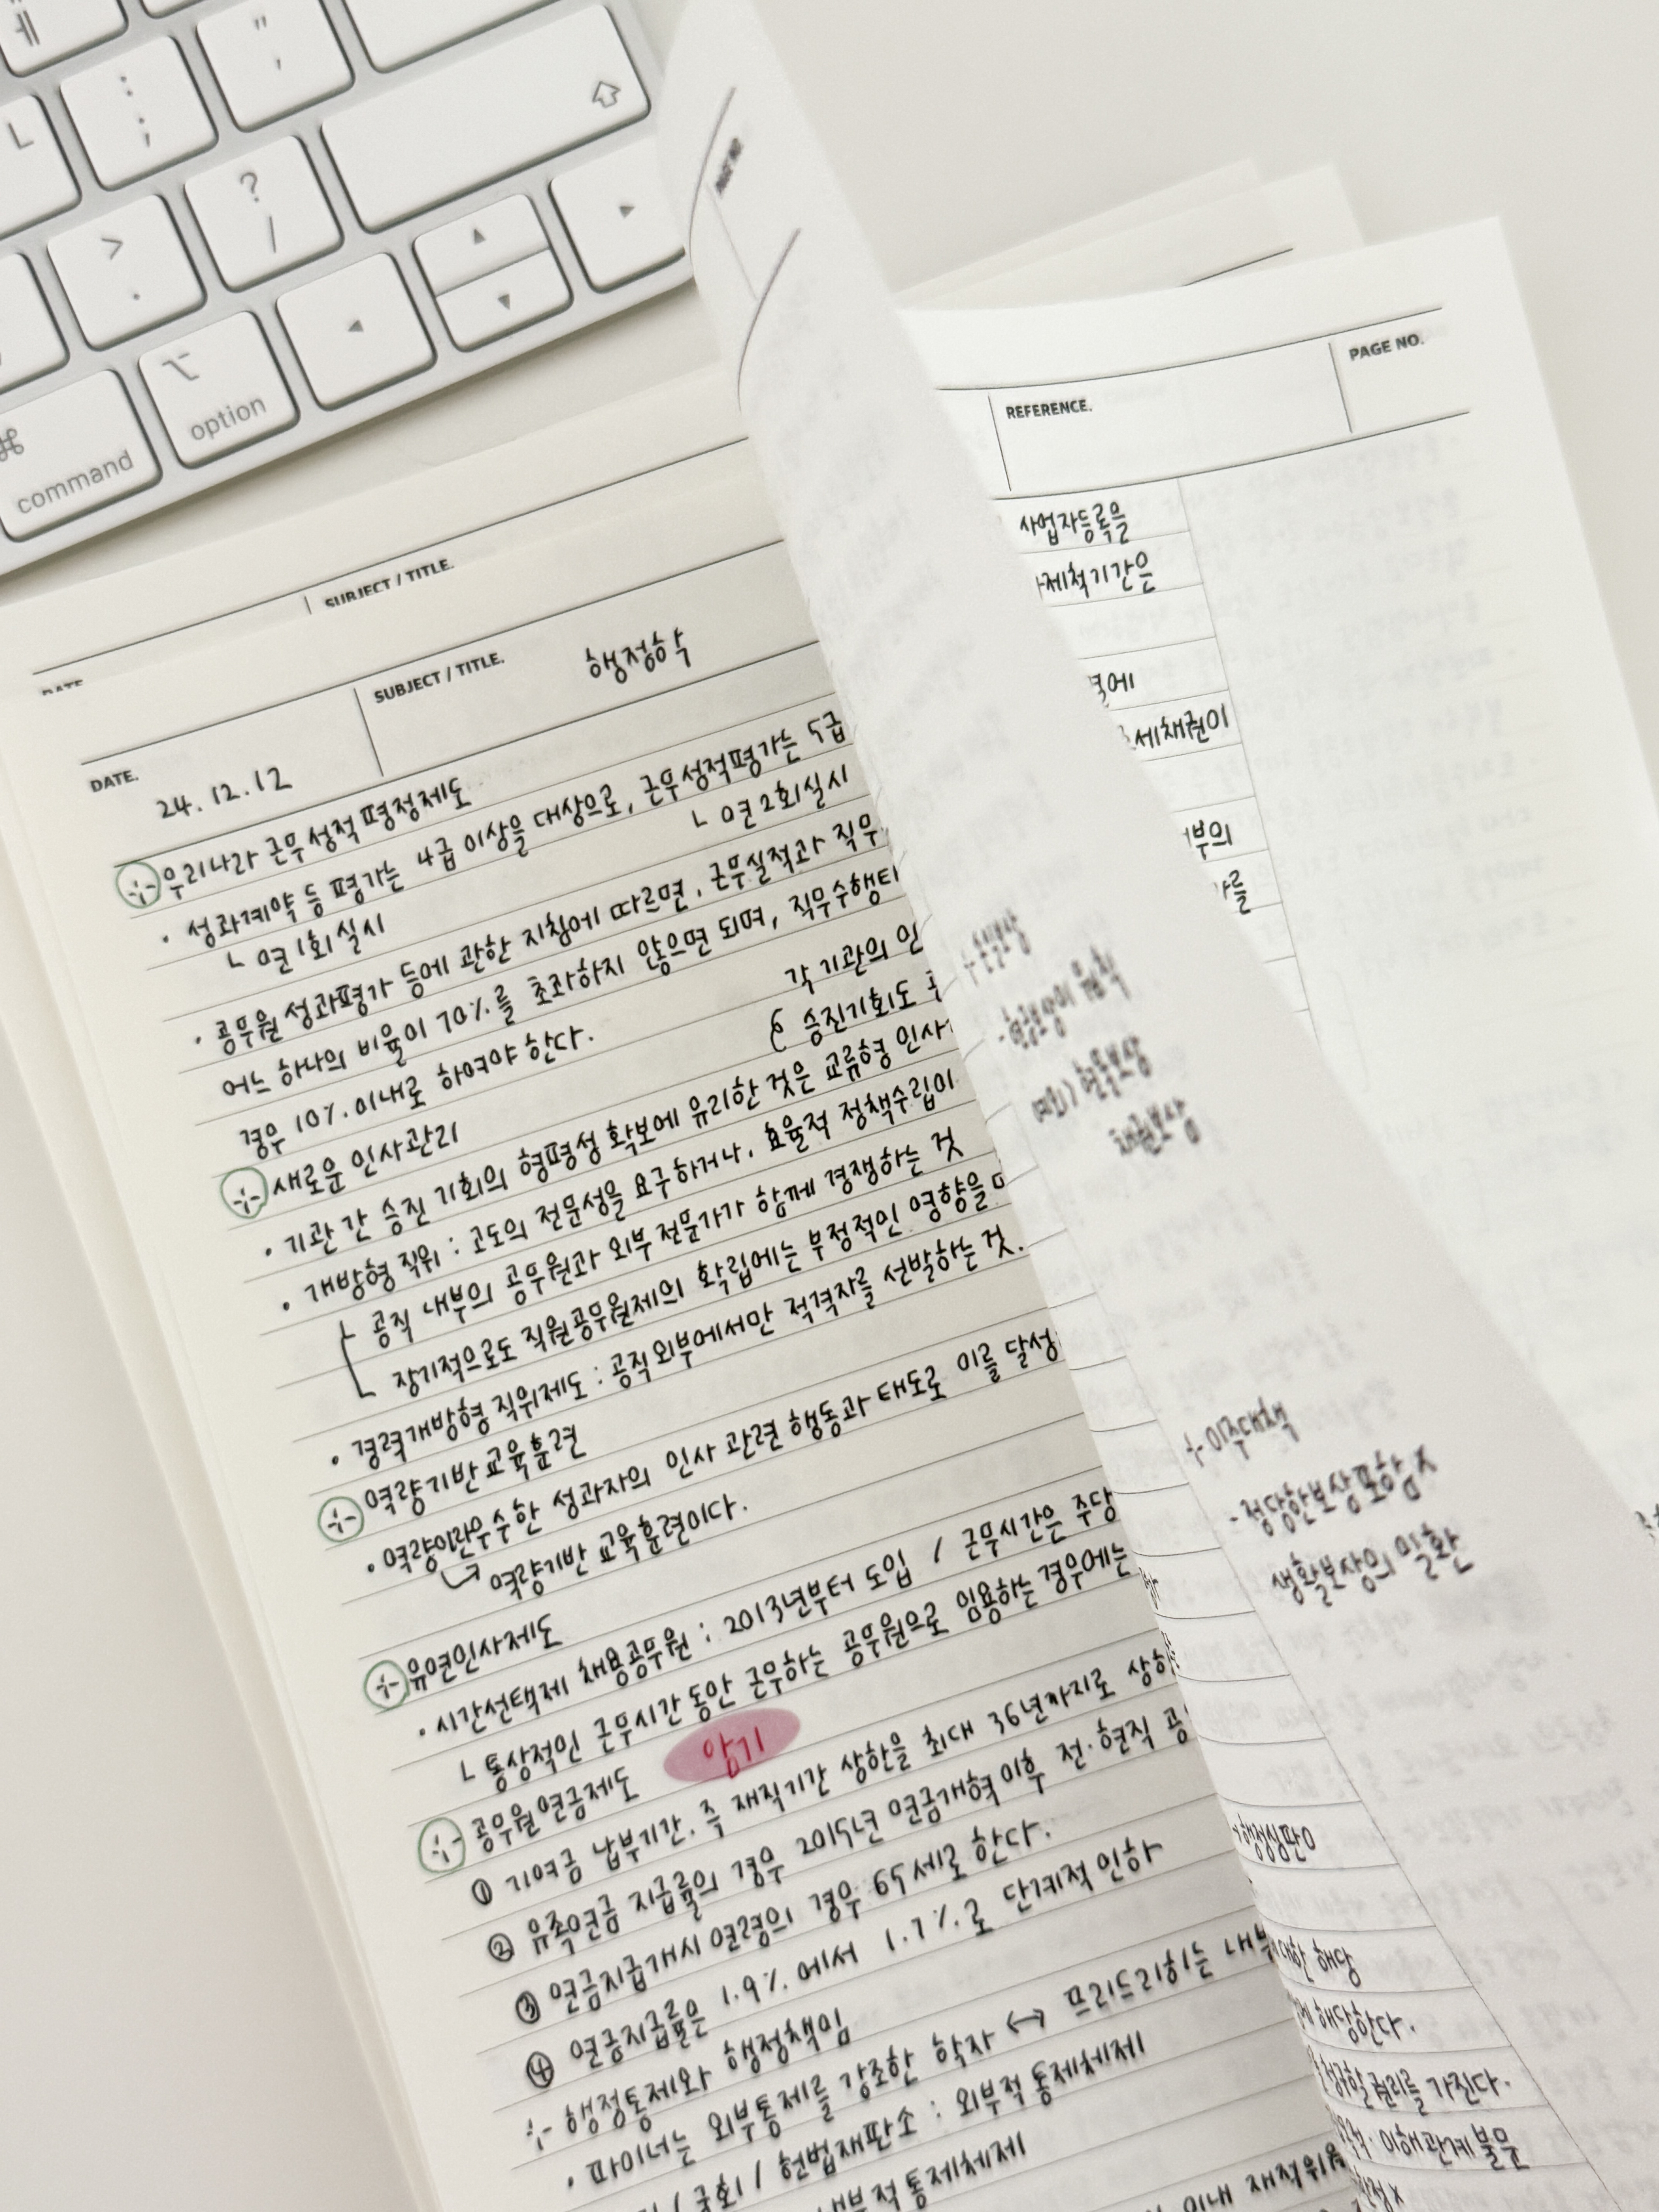 ㅔ
L
:
;
"
'
>
.
?
/
command
option
DATE
SUBJECT / TITLE.
DATE.
24.12.12
SUBJECT / TITLE.
행정학
우리나라 근무성적평정제도
· 성과계약 등 평가는 4급 이상을 대상으로, 근무성적평가는 5급
ㄴ 연 1회 실시
ㄴ 연 2회 실시
· 공무원 성과평가 등에 관한 지침에 따르면, 근무실적과 직무
어느 하나의 비율이 70%를 초과하지 않으면 되며, 직무수행
경우 10% 이내로 하여야 한다.
각 기관의 인
승진기회도
새로운 인사관리
· 기관 간 승진 기회의 형평성 확보에 유리한 것은 교류형 인사
· 개방형 직위 : 고도의 전문성을 요구하거나, 효율적 정책수립이
ㅏ 공직 내부의 공무원과 외부 전문가가 함께 경쟁하는 것
ㄴ 장기적으로도 직원공무원제의 확립에는 부정적인 영향을
· 경력개방형 직위제도 : 공직 외부에서만 적격자를 선발하는 것.
역량기반 교육훈련
· 역량이란 우수한 성과자의 인사 관련 행동과 태도로 이를 달성
↳ 역량기반 교육훈련이다.
유연인사제도
· 시간선택제 채용공무원 : 2013년부터 도입 / 근무시간은 주당
ㄴ 통상적인 근무시간 동안 근무하는 공무원으로 임용하는 경우에는
공무원 연금제도 암기
① 기여금 납부기간, 즉 재직기간 상한을 최대 36년까지로 상향
② 유족연금 지급률의 경우 2015년 연금개혁 이후 전·현직 공
③ 연금지급개시 연령의 경우 65세로 한다.
④ 연금지급률은 1.9%에서 1.7%로 단계적 인하
행정통제와 행정책임
· 파이너는 외부통제를 강조한 학자 ↔ 프리드리히는 내부
/ 국회 / 헌법재판소 : 외부적 통제체제
내부적 통제체제
이내 재직위원
PAGE NO.
REFERENCE.
PAGE NO.
사업자등록을
제척기간은
에
세채권이
부의
를
- 현금보상이 원칙
예외) 현물보상
채권보상
이주대책
- 정당한보상포함 x
생활보상의 일환
행정심판
대한 해당
해당한다.
청구할 권리를 가진다.
· 이해관계 불문